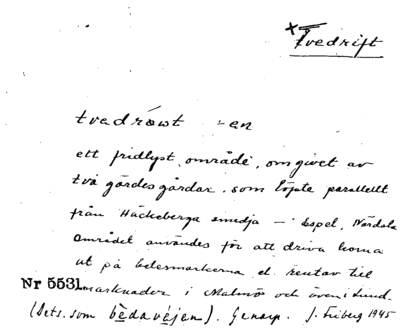 ×Tvedrift
tvedräwt -en
ett fridlyst område, omgivet av
två gärdesgårdar som löpte parallellt
från Häckeberga smedja –
området användes för att driva korna
ut på betesmarkerna el. rentav till
Nr 5531. marknader i Malmö och även i Lund.
(Dets. som bedavejen). Genarp. J. Friberg 1945